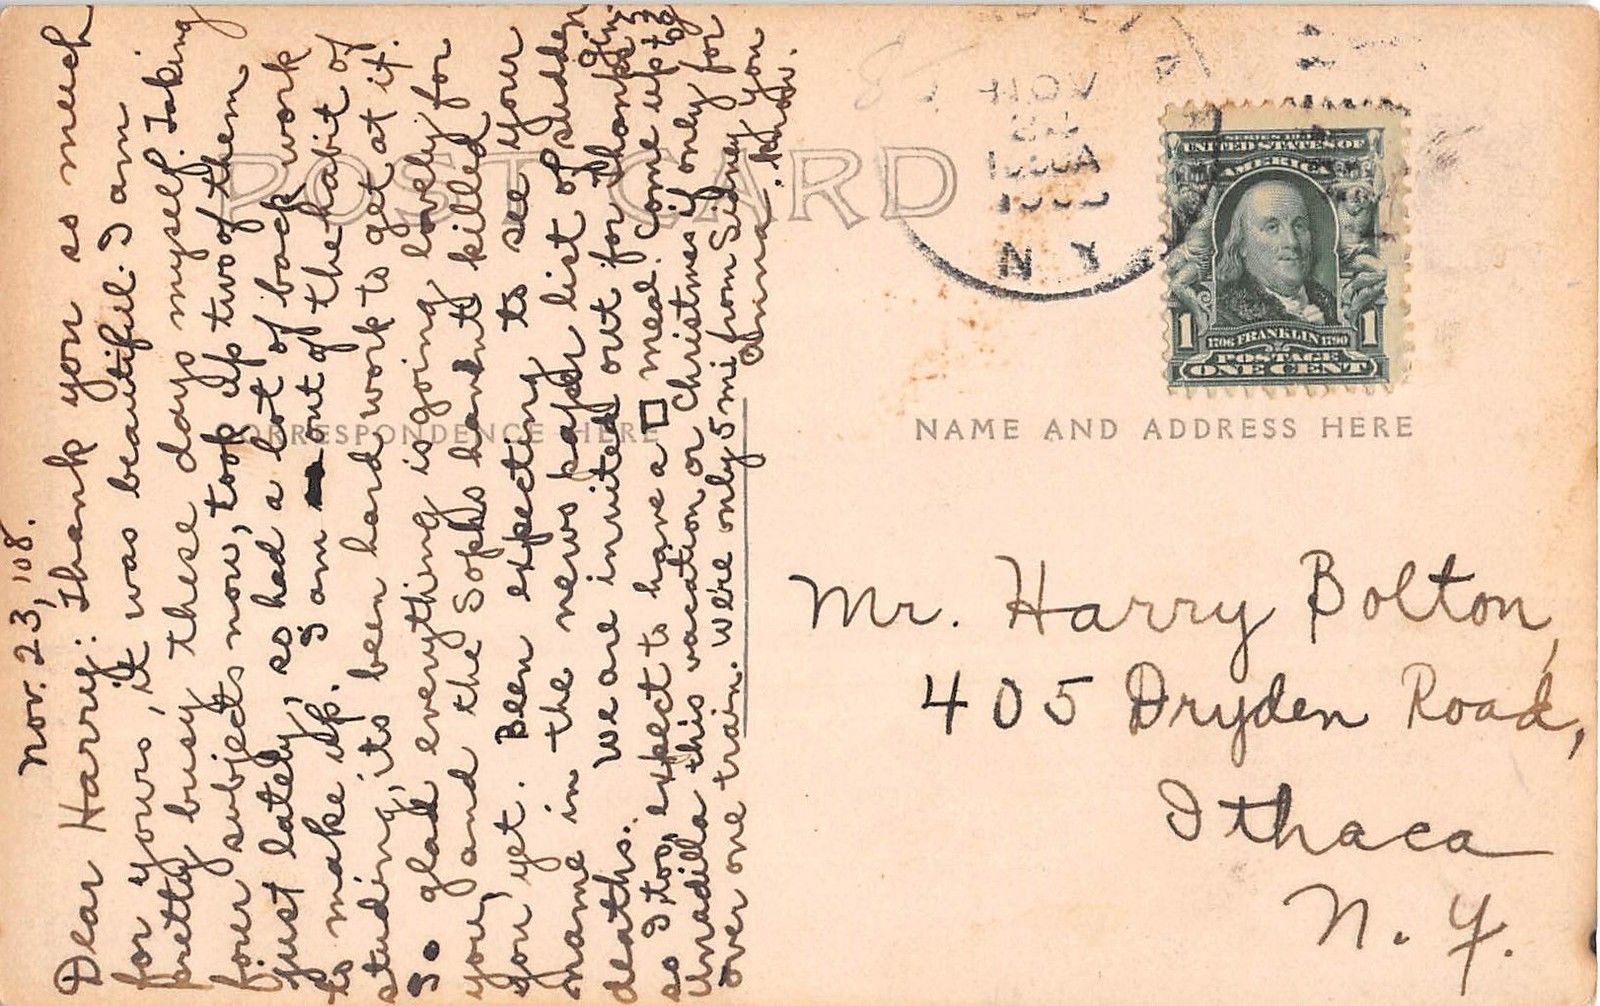 Nov. 23, '08.
Dear Harry: Thank you so much
for yours, it was beautiful. I am
pretty busy these days myself. Taking
four subjects now, took up two of them
just lately, so had a lot of back work
to make up. I am out of the habit of
studing, its been hard work to get at it.
So glad everything is going lovely for
you, and the Sophs havent killed
you yet. Been expecting to see your
name in the news paper list of sudden
deaths. We are invited out for Thanksgiving
so I too, expect to have a □ meal. Come up to
Unadilla this vacation or Christmas if only for
over one train. We're only 5 mi from Sidney you
know.
Anna.
POST CARD
CORRESPONDENCE HERE
NAME AND ADDRESS HERE
NOV
N.Y.
SERIES 1902
UNITED STATES OF
AMERICA
1 1706 FRANKLIN 1790 1
POSTAGE
ONE CENT
Mr. Harry Bolton,
405 Dryden Road,
Ithaca
N. Y.